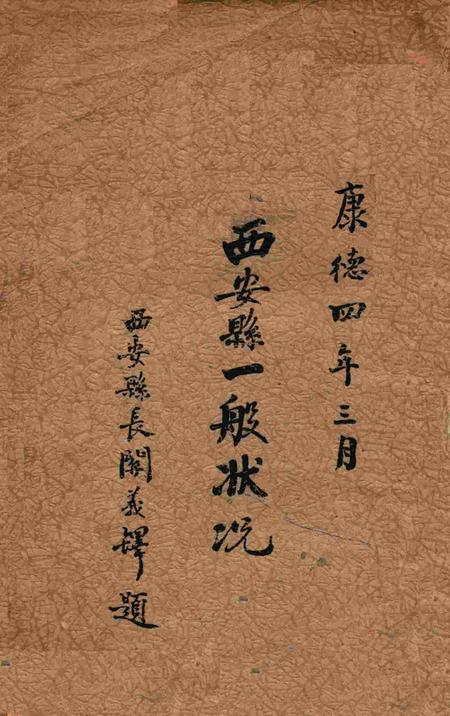 康德四年三月
西安縣一般狀況
西安縣長關義鐸題